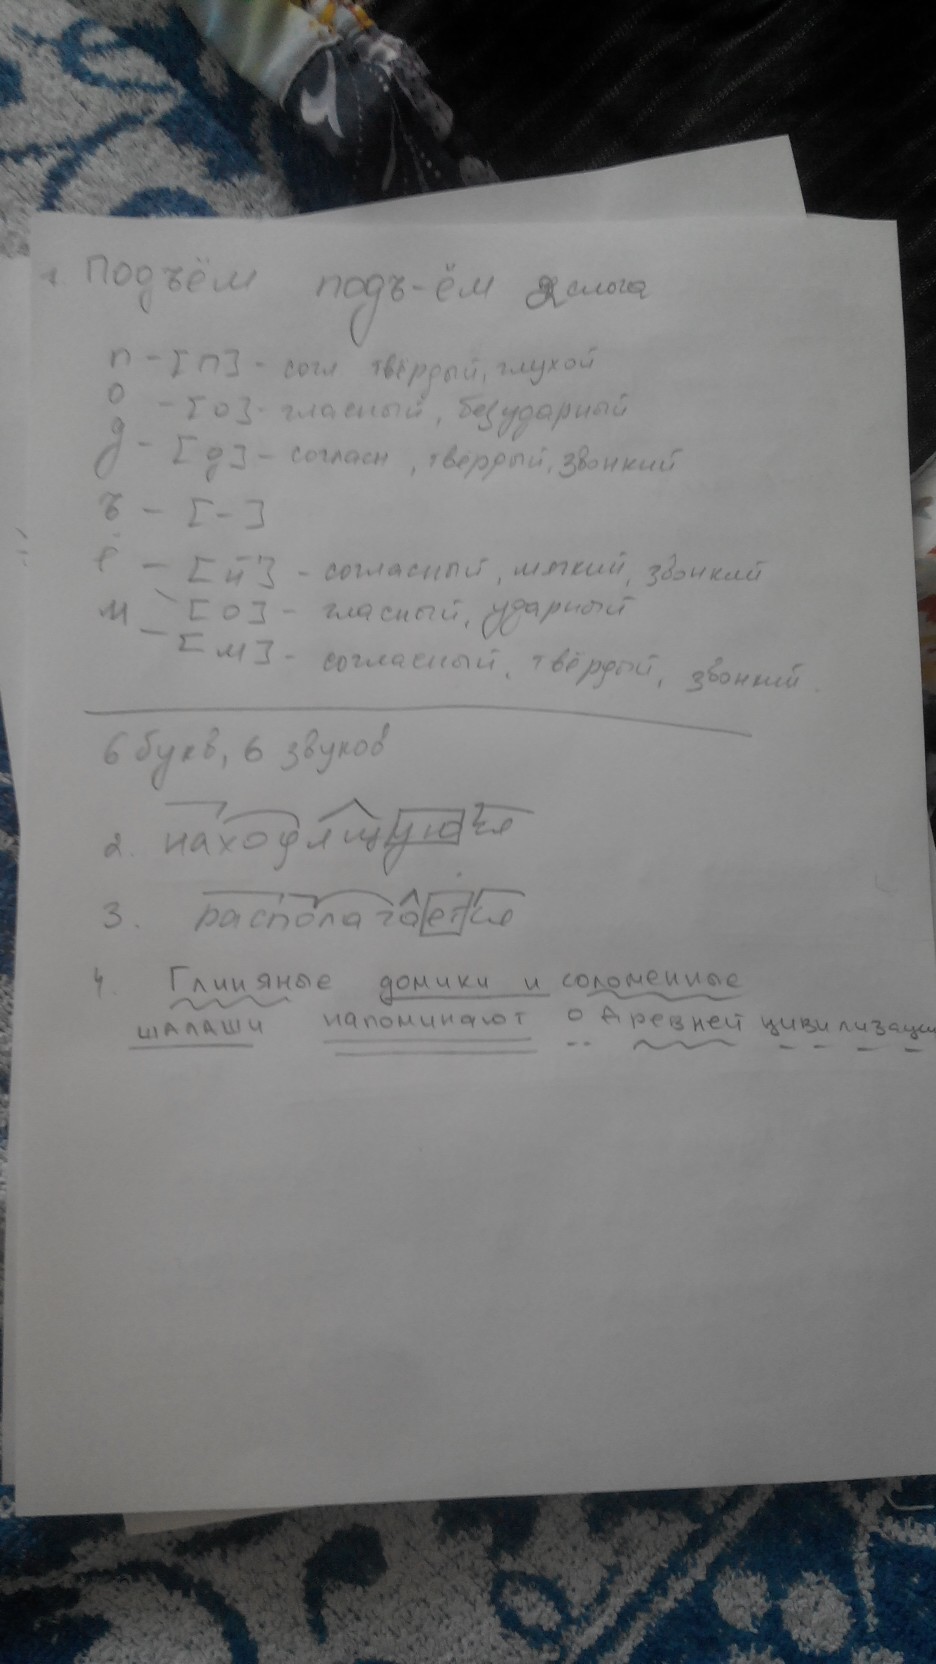 1. Подъём подъ-ём 2 слога
п - [п] - согл твёрдый, глухой
о - [о] - гласный, безударный
д - [д] - согласн, твёрдый, звонкий
ъ - [-]
ё - [й'] - согласный, мягкий, звонкий
[о] - гласный, ударный
м - [м] - согласный, твёрдый, звонкий.
6 букв, 6 звуков
2. находящуюся
3. располагается
4. Глиняные домики и соломенные
шалаши напоминают о древней цивилизации